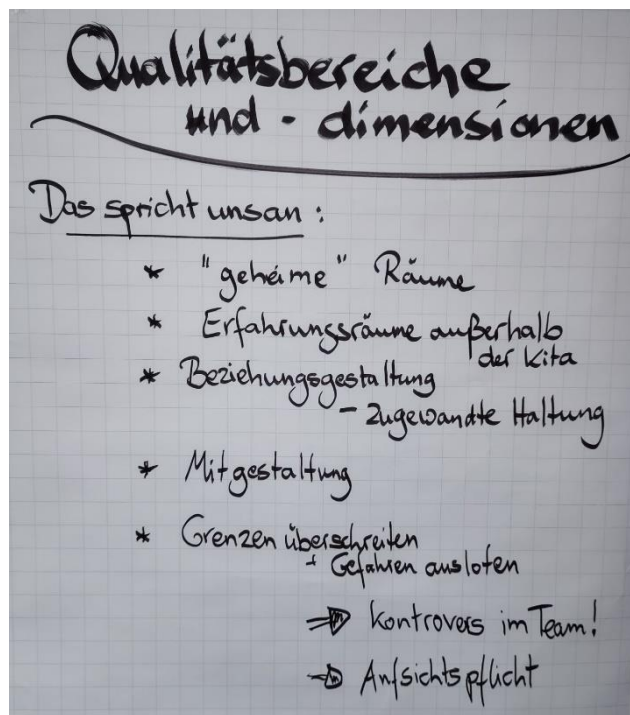 Qualitätsbereiche
und - dimensionen
Das spricht uns an :
* "geheime" Räume
* Erfahrungsräume außerhalb
der Kita
* Beziehungsgestaltung
- zugewandte Haltung
* Mitgestaltung
* Grenzen überschreiten
+ Gefahren ausloten
⇒ Kontrovers im Team!
→ Aufsichtspflicht